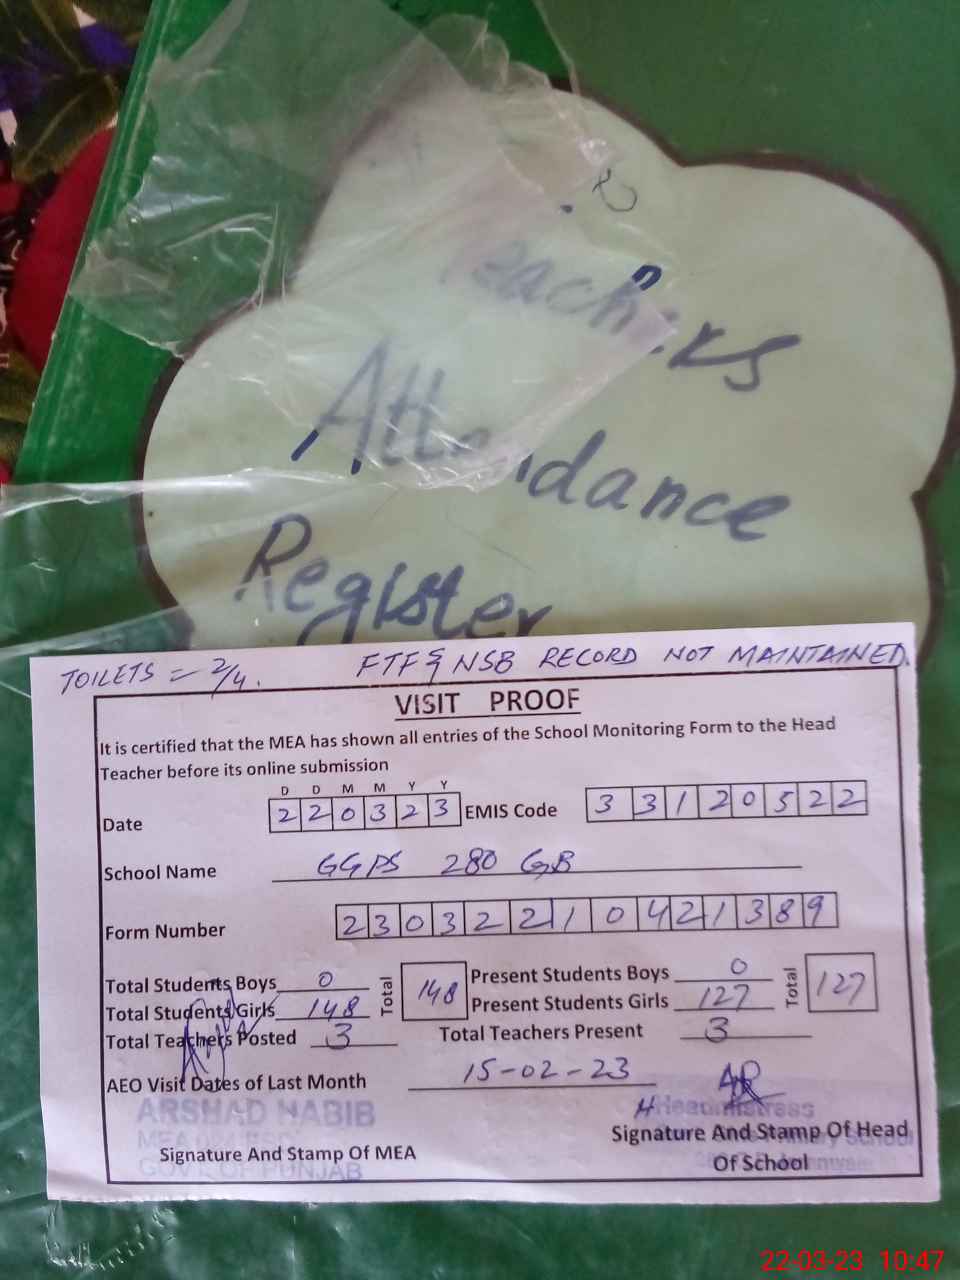 Teachers
Attendance
Register
TOILETS = 2/4. FTF & NSB RECORD NOT MAINTAINED.
VISIT PROOF
It is certified that the MEA has shown all entries of the School Monitoring Form to the Head
Teacher before its online submission
D D M M Y Y
Date 2 2 0 3 2 3 EMIS Code 3 3 1 2 0 5 2 2
School Name GGPS 280 GB
Form Number 2 3 0 3 2 2 2 1 0 4 2 1 3 8 9
Total Students Boys 0 Total 148 Present Students Boys 0 Total 127
Total Students Girls 148 Present Students Girls 127
Total Teachers Posted 3 Total Teachers Present 3
AEO Visit Dates of Last Month 15-02-23
ARSHAD HABIB
Headmistress
Signature And Stamp Of MEA
Signature And Stamp Of Head
Of School
GOVT. OF PUNJAB
22-03-23 10:47